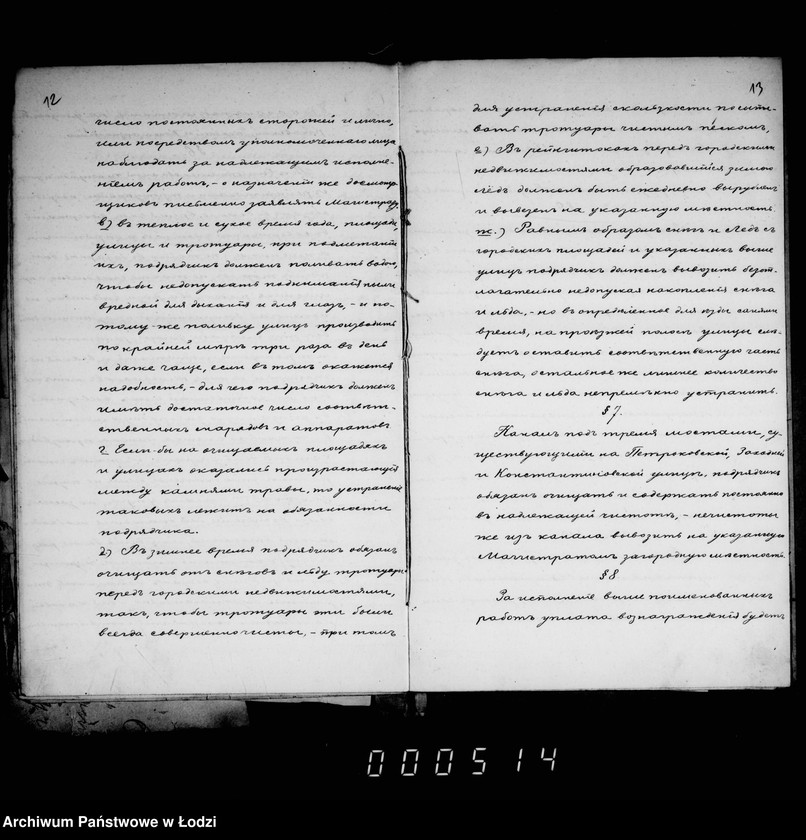 12
число постоянныхъ сторожей и лично,
или посредствомъ уполномоченнаго лица
наблюдать за надлежащимъ исполне-
ніемъ работъ, – о назначеніи же досмотр-
щиковъ письменно заявлять Магистрату.
в) въ теплое и сухое время года, площади,
улицы и тротуары, при подметаніи
ихъ, подрядчикъ долженъ поливать водою,
чтобы недопускать подниманія пыли
вредной для дыханія и для глазъ, – и по-
тому-же поливку улицъ производить
по крайней мѣрѣ три раза въ день
и даже чаще, если въ томъ окажется
надобность, – для чего подрядчикъ долженъ
имѣть достаточное число соотвѣт-
ственныхъ снарядовъ и аппаратовъ
г. Если-бы на очищаемыхъ площадяхъ
и улицахъ оказались произрастающія
между камнями травы, то устраненіе
таковыхъ лежитъ на обязанности
подрядчика.
д) Въ зимнее время подрядчикъ обязанъ
очищать отъ снѣговъ и льду тротуары
передъ городскими недвижимостями,
такъ, чтобы тротуары эти были
всегда совершенно чисты, – при томъ
13
для устраненія скользкости посыпы-
вать тротуары чистымъ пескомъ,
е) Въ рейнштокахъ передъ городскими
недвижимостями образовавшійся зимою
лёдъ долженъ быть ежедневно вырубаемъ
и вывезенъ на указанную мѣстность.
ж.) Равнымъ образомъ снѣгъ и лёдъ съ
городскихъ площадей и указанныхъ выше
улицъ подрядчикъ долженъ вывозить безот-
лагательно недопуская накопленія снѣга
и льда, – но въ опредѣленное для ѣзды санями
время, на проѣзжей полосѣ улицы слѣ-
дуетъ оставить соотвѣтственную часть
снѣга, остальное же лишнее количество
снѣга и льда непремѣнно устранить.
§ 7.
Каналъ подъ тремя мостами, су-
ществующими на Петроковской, Заходней
и Константиновской улицъ, подрядчикъ
обязанъ очищать и содержать постоянно
въ надлежащей чистотѣ, – нечистоты
же изъ канала вывозить на указанную
Магистратомъ загородную мѣстность.
§ 8
За исполненіе выше поименованныхъ
работъ уплата вознагражденія будетъ
000514
Archiwum Państwowe w Łodzi